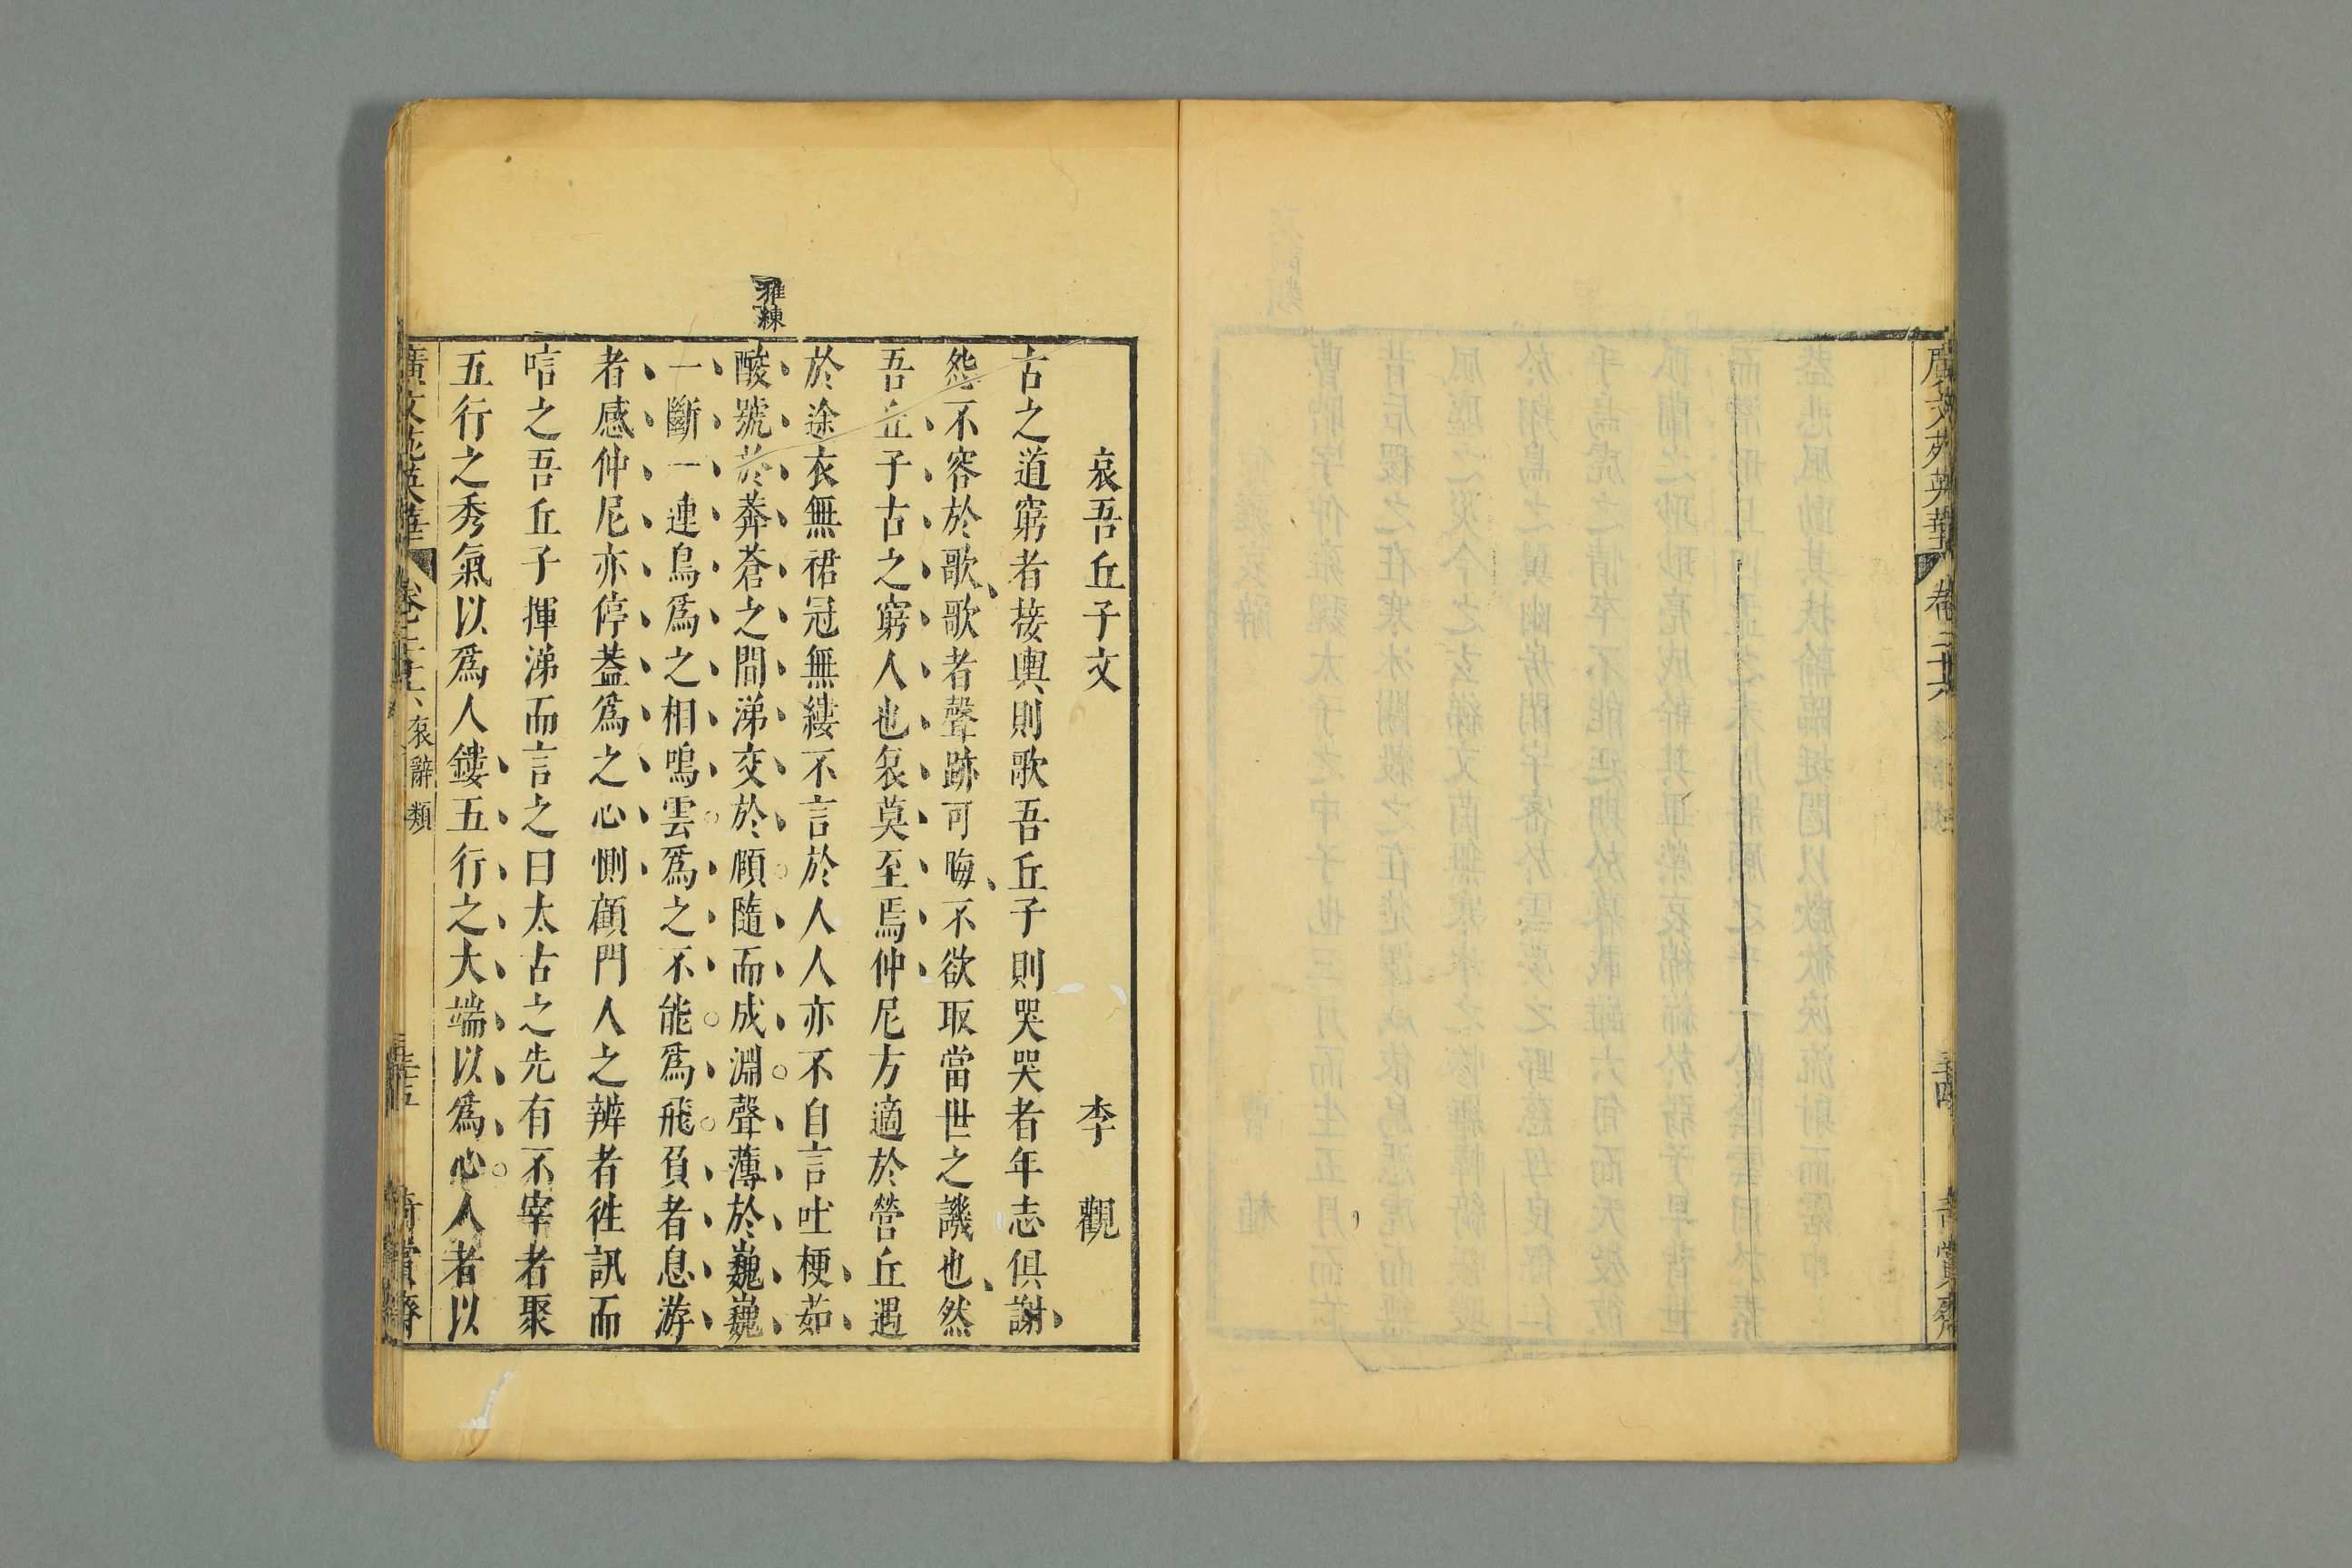 廣文苑英華
卷二十六
三十四
奇賞齋
哀吾丘子文
李觀
古之道窮者接輿則歌吾丘子則哭哭者年志俱謝
怨不容於歌歌者聲跡可晦不欲取當世之譏也然
吾丘子古之窮人也哀莫至焉仲尼方適於營丘遇
於途衣無裙冠無縷不言於人人亦不自言吐梗茹
酸號於莽蒼之間涕交於頤隨而成淵聲薄於巍巍
一斷一連鳥爲之相鳴雲爲之不能爲飛負者息游
者感仲尼亦停蓋爲之心惻顧門人之辨者徃訊而
唁之吾丘子揮涕而言之曰太古之先有不宰者聚
五行之秀氣以爲人鏤五行之大端以爲心人者以
雅練
廣文苑英華
卷二十六
哀辭類
三十五
奇賞齋